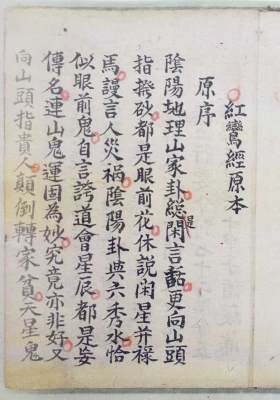 紅鸞經原本
原序
陰陽地理山家卦總是閑言話更向山頭
指撥砂都是眼前花休説閑星并禄
馬謾言人災禍陰陽卦與六秀水恰
似眼前鬼自言誇道會星辰都是妄
傳名連山鬼運因為妙究竟亦非好又
向山頭指貴人顛倒轉家貧天星鬼